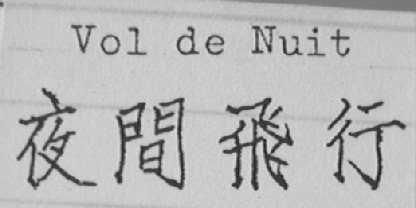 Vol de Nuit
夜間飛行